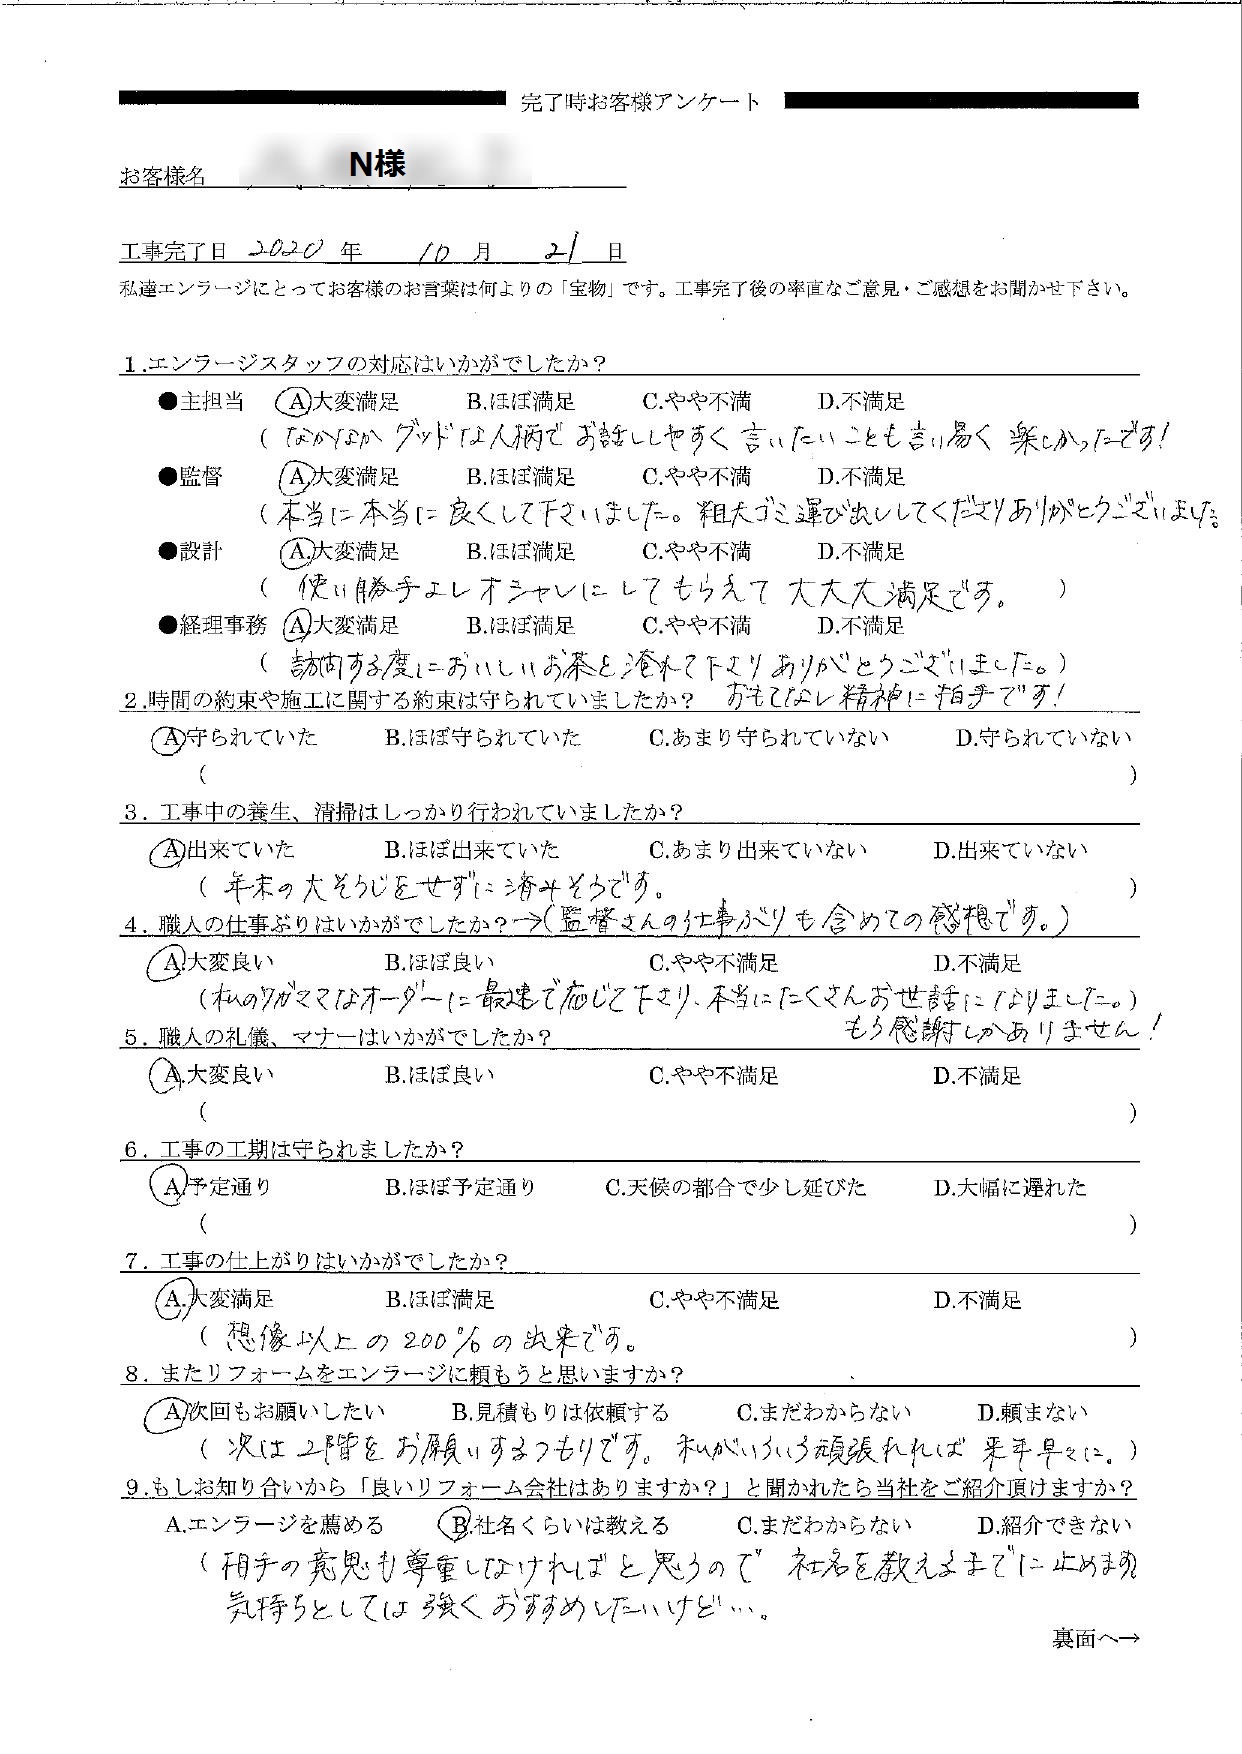 完了時お客様アンケート
お客様名 N様
工事完了日 2020 年 10 月 21 日
私達エンラージにとってお客様のお言葉は何よりの「宝物」です。工事完了後の率直なご意見・ご感想をお聞かせ下さい。
1.エンラージスタッフの対応はいかがでしたか？
●主担当 A大変満足 B.ほぼ満足 C.やや不満 D.不満足
( なかなかグッドな人柄で お話ししやすく 言いたいことも言い易く 楽しかったです!
●監督 A大変満足 B.ほぼ満足 C.やや不満 D.不満足
(本当に本当に良くして下さいました。粗大ゴミ運び出ししてくださりありがとうございました。
●設計 A大変満足 B.ほぼ満足 C.やや不満 D.不満足
( 使い勝手よしオシャレにしてもらえて 大大大満足です。 )
●経理事務 A大変満足 B.ほぼ満足 C.やや不満 D.不満足
( 訪問する度においしいお茶を淹れて下さりありがとうございました。)
2.時間の約束や施工に関する約束は守られていましたか？ おもてなし精神に拍手です!
A守られていた B.ほぼ守られていた C.あまり守られていない D.守られていない
( )
3. 工事中の養生、清掃はしっかり行われていましたか？
A出来ていた B.ほぼ出来ていた C.あまり出来ていない D.出来ていない
( 年末の大そうじをせずに済みそうです。 )
4. 職人の仕事ぶりはいかがでしたか？→(監督さんの仕事ぶりも含めての感想です。)
A.大変良い B.ほぼ良い C.やや不満足 D.不満足
(私のワガママなオーダーに最速で応じて下さり、本当にたくさんお世話になりました。)
もう感謝しかありません!
5. 職人の礼儀、マナーはいかがでしたか？
A.大変良い B.ほぼ良い C.やや不満足 D.不満足
( )
6. 工事の工期は守られましたか？
A予定通り B.ほぼ予定通り C.天候の都合で少し延びた D.大幅に遅れた
( )
7. 工事の仕上がりはいかがでしたか？
A.大変満足 B.ほぼ満足 C.やや不満足 D.不満足
( 想像以上の200%の出来です。 )
8. またリフォームをエンラージに頼もうと思いますか？
A次回もお願いしたい B.見積もりは依頼する C.まだわからない D.頼まない
( 次は2階をお願いするつもりです。私がいろいろ頑張れれば来年早々に。)
9.もしお知り合いから「良いリフォーム会社はありますか？」と聞かれたら当社をご紹介頂けますか？
A.エンラージを薦める B.社名くらいは教える C.まだわからない D.紹介できない
( 相手の意思も尊重しなければと思うので 社名を教えるまでに止めます
気持ちとしては強くおすすめしたいけど…。
裏面へ→